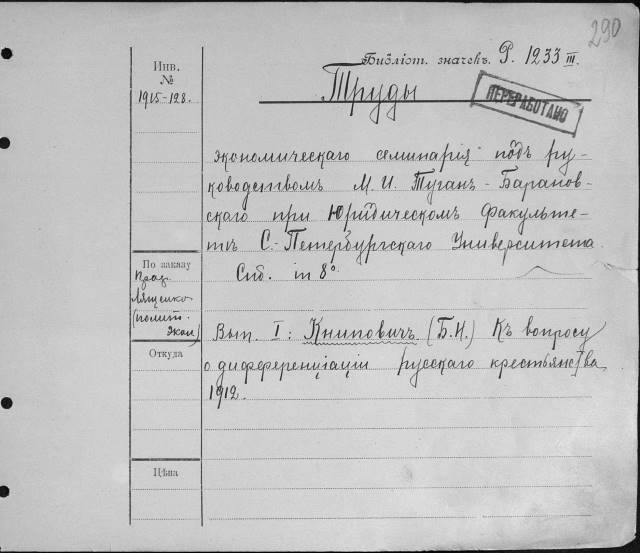 290
Библіот. значекъ. Р. 1233 III.
Инв.
№
1915-128.
Труды
ПЕРЕРАБОТАНО
экономическаго семинарія подъ ру-
ководствомъ М. И. Туганъ-Баранов-
скаго при Юридическомъ Факульте-
тѣ С.-Петербургскаго Университета.
Спб. in 8°.
По заказу
проф.
Лященко
(полит.
экон)
Вып. I: Книповичъ (Б.Н.) Къ вопросу
о диференціаціи русскаго крестьянства
1912.
Откуда
Цѣна